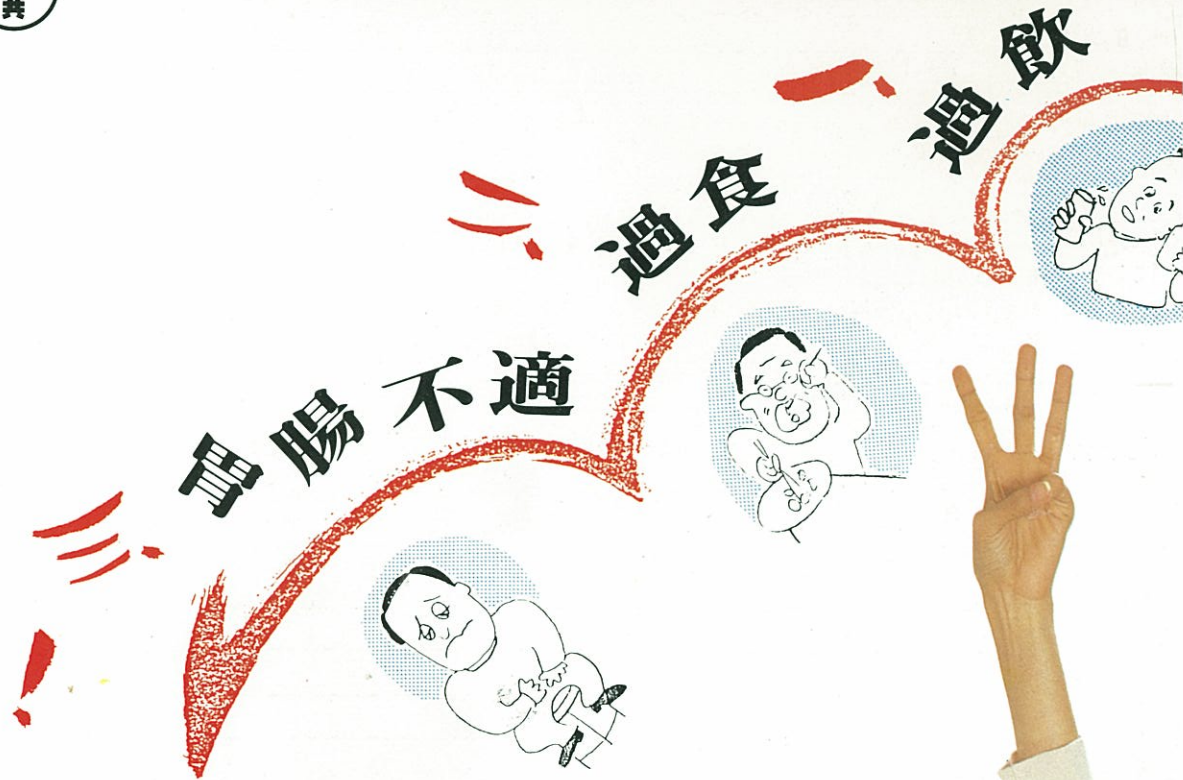 一.過飲
二.過食
三.胃腸不適
!